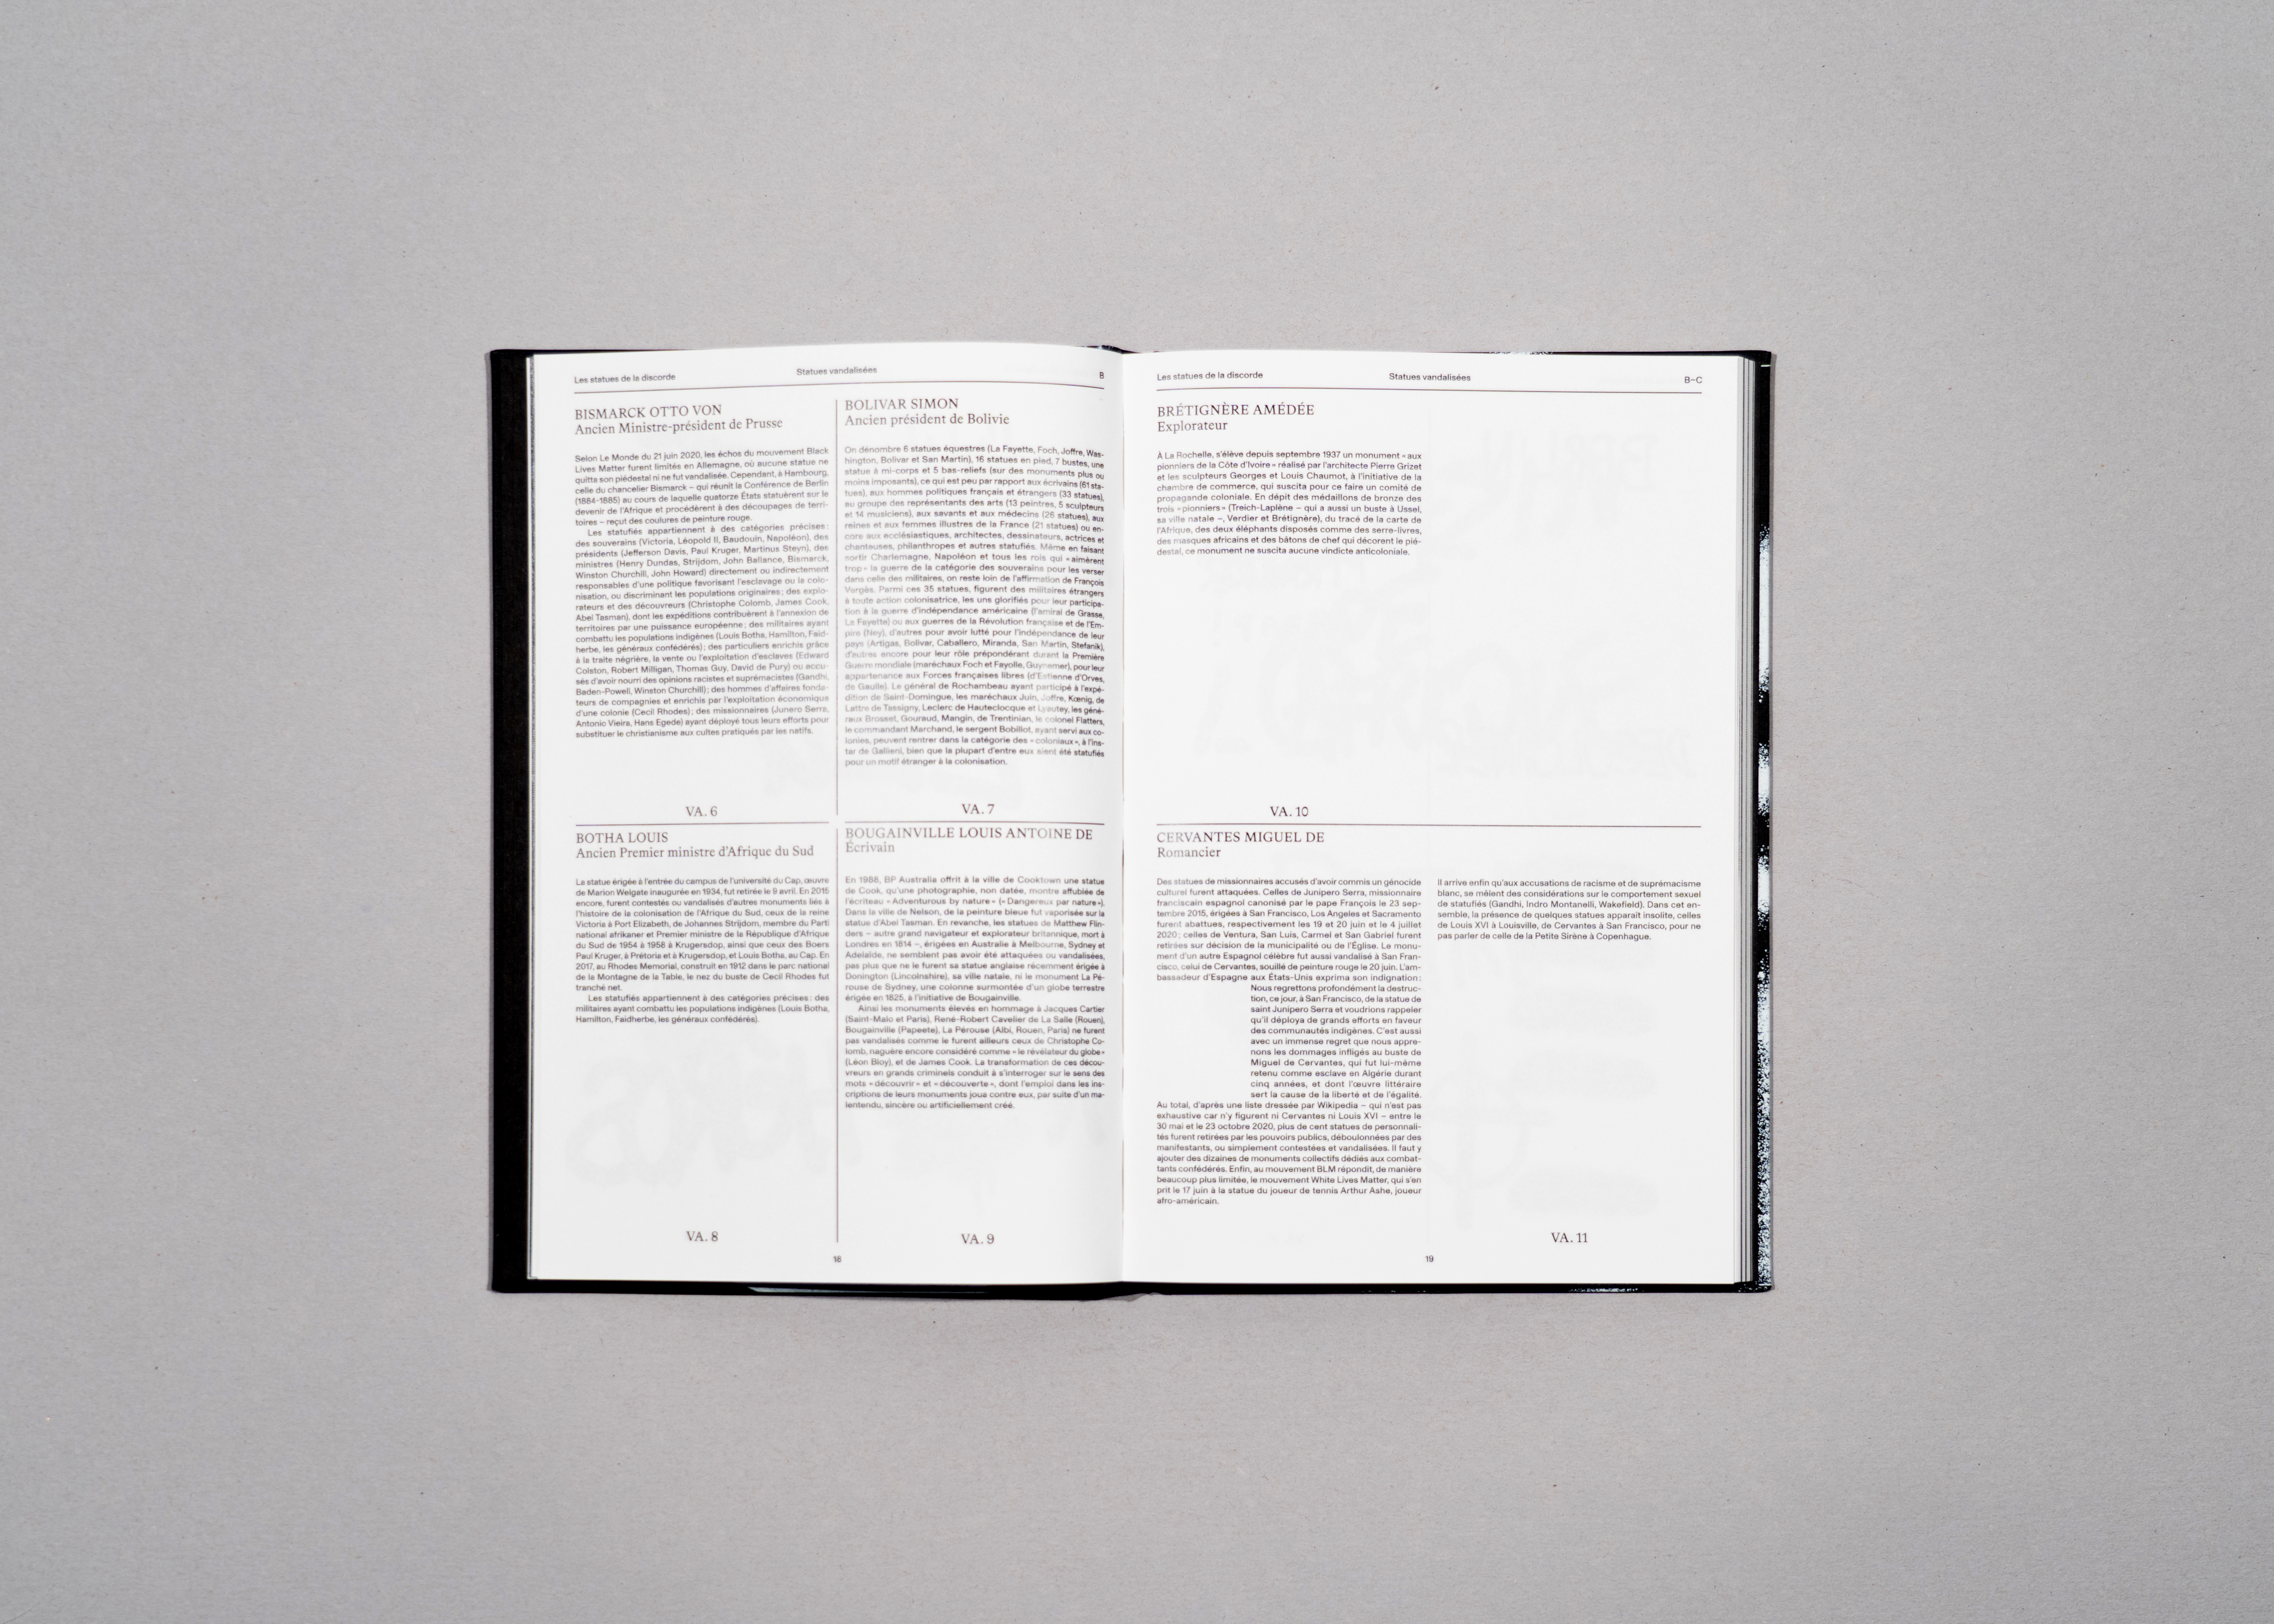 Les statues de la discorde
Statues vandalisées
B
BISMARCK OTTO VON
Ancien Ministre-président de Prusse
Selon Le Monde du 21 juin 2020, les échos du mouvement Black
Lives Matter furent limités en Allemagne, où aucune statue ne
quitta son piédestal ni ne fut vandalisée. Cependant, à Hambourg,
celle du chancelier Bismarck – qui réunit la Conférence de Berlin
(1884-1885) au cours de laquelle quatorze États statuèrent sur le
devenir de l'Afrique et procédèrent à des découpages de terri-
toires – reçut des coulures de peinture rouge.
Les statufiés appartiennent à des catégories précises :
des souverains (Victoria, Léopold II, Baudouin, Napoléon), des
présidents (Jefferson Davis, Paul Kruger, Martinus Steyn), des
ministres (Henry Dundas, Strijdom, John Ballance, Bismarck,
Winston Churchill, John Howard) directement ou indirectement
responsables d'une politique favorisant l'esclavage ou la colo-
nisation, ou discriminant les populations originaires ; des explo-
rateurs et des découvreurs (Christophe Colomb, James Cook,
Abel Tasman), dont les expéditions contribuèrent à l'annexion de
territoires par une puissance européenne ; des militaires ayant
combattu les populations indigènes (Louis Botha, Hamilton, Faid-
herbe, les généraux confédérés) ; des particuliers enrichis grâce
à la traite négrière, la vente ou l'exploitation d'esclaves (Edward
Colston, Robert Milligan, Thomas Guy, David de Pury) ou accu-
sés d'avoir nourri des opinions racistes et suprémacistes (Gandhi,
Baden-Powell, Winston Churchill) ; des hommes d'affaires fonda-
teurs de compagnies et enrichis par l'exploitation économique
d'une colonie (Cecil Rhodes) ; des missionnaires (Junero Serra,
Antonio Vieira, Hans Egede) ayant déployé tous leurs efforts pour
substituer le christianisme aux cultes pratiqués par les natifs.
VA. 6
BOLIVAR SIMON
Ancien président de Bolivie
On dénombre 6 statues équestres (La Fayette, Foch, Joffre, Was-
hington, Bolivar et San Martin), 16 statues en pied, 7 bustes, une
statue à mi-corps et 5 bas-reliefs (sur des monuments plus ou
moins imposants), ce qui est peu par rapport aux écrivains (61 sta-
tues), aux hommes politiques français et étrangers (33 statues),
au groupe des représentants des arts (13 peintres, 5 sculpteurs
et 14 musiciens), aux savants et aux médecins (25 statues), aux
reines et aux femmes illustres de la France (21 statues) ou en-
core aux ecclésiastiques, architectes, dessinateurs, actrices et
chanteuses, philanthropes et autres statufiés. Même en faisant
sortir Charlemagne, Napoléon et tous les rois qui « aimèrent
trop » la guerre de la catégorie des souverains pour les verser
dans celle des militaires, on reste loin de l'affirmation de François
Vergès. Parmi ces 35 statues, figurent des militaires étrangers
à toute action colonisatrice, les uns glorifiés pour leur participa-
tion à la guerre d'indépendance américaine (l'amiral de Grasse,
La Fayette) ou aux guerres de la Révolution française et de l'Em-
pire (Ney), d'autres pour avoir lutté pour l'indépendance de leur
pays (Artigas, Bolivar, Caballero, Miranda, San Martin, Stefanik),
d'autres encore pour leur rôle prépondérant durant la Première
Guerre mondiale (maréchaux Foch et Fayolle, Guynemer), pour leur
appartenance aux Forces françaises libres (d'Estienne d'Orves,
de Gaulle). Le général de Rochambeau ayant participé à l'expé-
dition de Saint-Domingue, les maréchaux Juin, Joffre, Kœnig, de
Lattre de Tassigny, Leclerc de Hauteclocque et Lyautey, les géné-
raux Brosset, Gouraud, Mangin, de Trentinian, le colonel Flatters,
le commandant Marchand, le sergent Bobillot, ayant servi aux co-
lonies, peuvent rentrer dans la catégorie des « coloniaux », à l'ins-
tar de Gallieni, bien que la plupart d'entre eux aient été statufiés
pour un motif étranger à la colonisation.
VA. 7
BOTHA LOUIS
Ancien Premier ministre d'Afrique du Sud
La statue érigée à l'entrée du campus de l'université du Cap, œuvre
de Marion Welgate inaugurée en 1934, fut retirée le 9 avril. En 2015
encore, furent contestés ou vandalisés d'autres monuments liés à
l'histoire de la colonisation de l'Afrique du Sud, ceux de la reine
Victoria à Port Elizabeth, de Johannes Strijdom, membre du Parti
national afrikaner et Premier ministre de la République d'Afrique
du Sud de 1954 à 1958 à Krugersdop, ainsi que ceux des Boers
Paul Kruger, à Prétoria et à Krugersdop, et Louis Botha, au Cap. En
2017, au Rhodes Memorial, construit en 1912 dans le parc national
de la Montagne de la Table, le nez du buste de Cecil Rhodes fut
tranché net.
Les statufiés appartiennent à des catégories précises : des
militaires ayant combattu les populations indigènes (Louis Botha,
Hamilton, Faidherbe, les généraux confédérés).
VA. 8
BOUGAINVILLE LOUIS ANTOINE DE
Écrivain
En 1988, BP Australia offrit à la ville de Cooktown une statue
de Cook, qu'une photographie, non datée, montre affublée de
l'écriteau « Adventurous by nature » (« Dangereux par nature »).
Dans la ville de Nelson, de la peinture bleue fut vaporisée sur la
statue d'Abel Tasman. En revanche, les statues de Matthew Flin-
ders – autre grand navigateur et explorateur britannique, mort à
Londres en 1814 –, érigées en Australie à Melbourne, Sydney et
Adelaïde, ne semblent pas avoir été attaquées ou vandalisées,
pas plus que ne le furent sa statue anglaise récemment érigée à
Donington (Lincolnshire), sa ville natale, ni le monument La Pé-
rouse de Sydney, une colonne surmontée d'un globe terrestre
érigée en 1825, à l'initiative de Bougainville.
Ainsi les monuments élevés en hommage à Jacques Cartier
(Saint-Malo et Paris), René-Robert Cavelier de La Salle (Rouen),
Bougainville (Papeete), La Pérouse (Albi, Rouen, Paris) ne furent
pas vandalisés comme le furent ailleurs ceux de Christophe Co-
lomb, naguère encore considéré comme « le révélateur du globe »
(Léon Bloy), et de James Cook. La transformation de ces décou-
vreurs en grands criminels conduit à s'interroger sur le sens des
mots « découvrir » et « découverte », dont l'emploi dans les ins-
criptions de leurs monuments joua contre eux, par suite d'un ma-
lentendu, sincère ou artificiellement créé.
VA. 9
18
Les statues de la discorde
Statues vandalisées
B–C
BRÉTIGNÈRE AMÉDÉE
Explorateur
À La Rochelle, s'élève depuis septembre 1937 un monument « aux
pionniers de la Côte d'Ivoire » réalisé par l'architecte Pierre Grizet
et les sculpteurs Georges et Louis Chaumot, à l'initiative de la
chambre de commerce, qui suscita pour ce faire un comité de
propagande coloniale. En dépit des médaillons de bronze des
trois « pionniers » (Treich-Laplène – qui a aussi un buste à Ussel,
sa ville natale –, Verdier et Brétignère), du tracé de la carte de
l'Afrique, des deux éléphants disposés comme des serre-livres,
des masques africains et des bâtons de chef qui décorent le pié-
destal, ce monument ne suscita aucune vindicte anticoloniale.
VA. 10
CERVANTES MIGUEL DE
Romancier
Des statues de missionnaires accusés d'avoir commis un génocide
culturel furent attaquées. Celles de Junipero Serra, missionnaire
franciscain espagnol canonisé par le pape François le 23 sep-
tembre 2015, érigées à San Francisco, Los Angeles et Sacramento
furent abattues, respectivement les 19 et 20 juin et le 4 juillet
2020 ; celles de Ventura, San Luis, Carmel et San Gabriel furent
retirées sur décision de la municipalité ou de l'Église. Le monu-
ment d'un autre Espagnol célèbre fut aussi vandalisé à San Fran-
cisco, celui de Cervantes, souillé de peinture rouge le 20 juin. L'am-
bassadeur d'Espagne aux États-Unis exprima son indignation :
Nous regrettons profondément la destruc-
tion, ce jour, à San Francisco, de la statue de
saint Junipero Serra et voudrions rappeler
qu'il déploya de grands efforts en faveur
des communautés indigènes. C'est aussi
avec un immense regret que nous appre-
nons les dommages infligés au buste de
Miguel de Cervantes, qui fut lui-même
retenu comme esclave en Algérie durant
cinq années, et dont l'œuvre littéraire
sert la cause de la liberté et de l'égalité.
Au total, d'après une liste dressée par Wikipedia – qui n'est pas
exhaustive car n'y figurent ni Cervantes ni Louis XVI – entre le
30 mai et le 23 octobre 2020, plus de cent statues de personnali-
tés furent retirées par les pouvoirs publics, déboulonnées par des
manifestants, ou simplement contestées et vandalisées. Il faut y
ajouter des dizaines de monuments collectifs dédiés aux combat-
tants confédérés. Enfin, au mouvement BLM répondit, de manière
beaucoup plus limitée, le mouvement White Lives Matter, qui s'en
prit le 17 juin à la statue du joueur de tennis Arthur Ashe, joueur
afro-américain.
Il arrive enfin qu'aux accusations de racisme et de suprémacisme
blanc, se mêlent des considérations sur le comportement sexuel
de statufiés (Gandhi, Indro Montanelli, Wakefield). Dans cet en-
semble, la présence de quelques statues apparait insolite, celles
de Louis XVI à Louisville, de Cervantes à San Francisco, pour ne
pas parler de celle de la Petite Sirène à Copenhague.
VA. 11
19